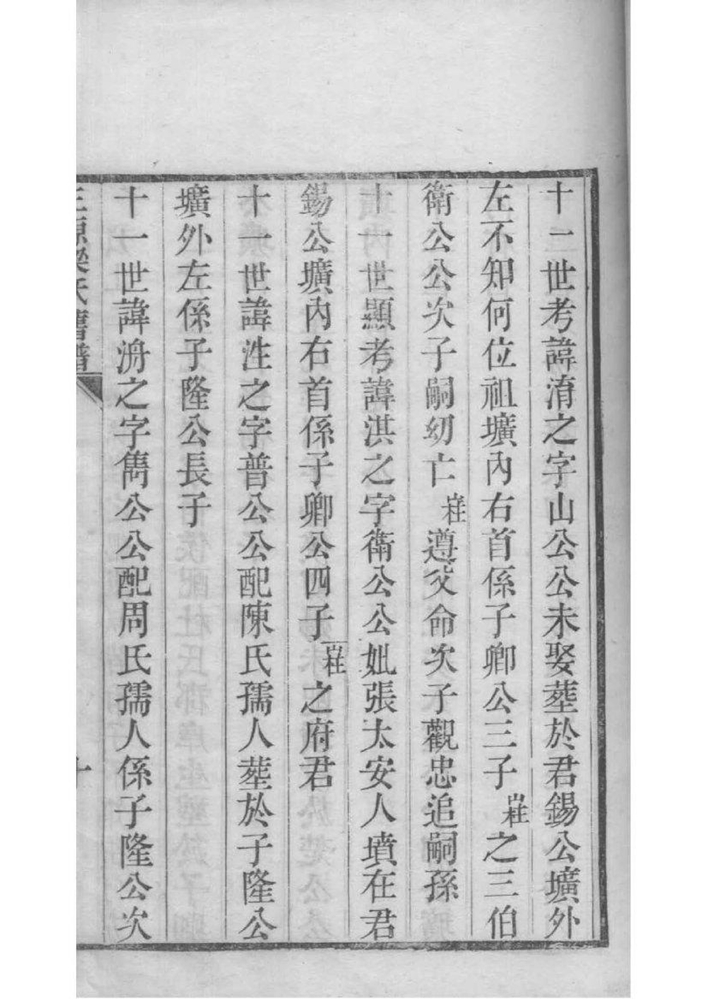 十一世考諱淯之字山公公未娶塟於君錫公壙外
左不知何位祖壙內右首係子卿公三子𡷫之三伯
衛公公次子嗣幼亡𡷫遵父命次子觀忠追嗣孫
十一世顯考諱洪之字衛公公妣張太安人墳在君
錫公壙內右首係子卿公四子𡷫之府君
十一世諱泩之字普公公配陳氏孺人塟於子隆公
壙外左係子隆公長子
十一世諱洀之字雋公公配周氏孺人係子隆公次
三原梁氏舊譜
十